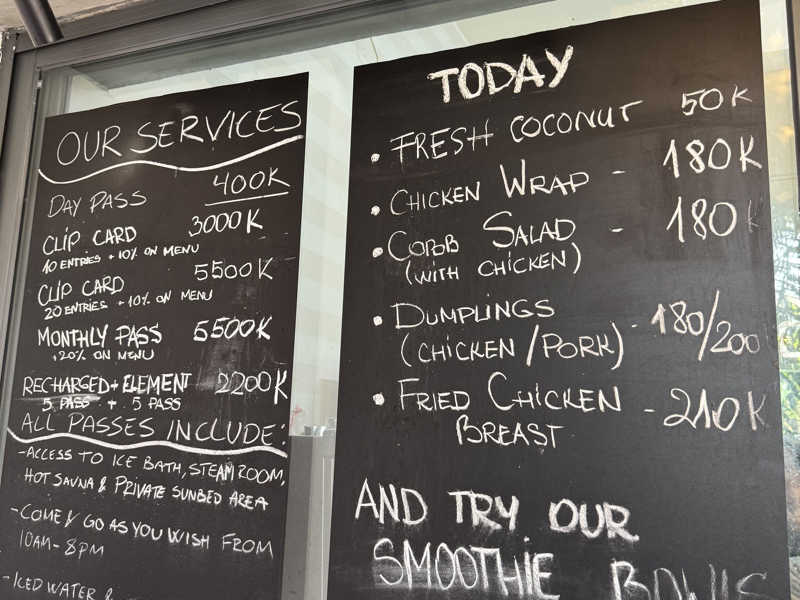 OUR SERVICES
DAY PASS 400K
CLIP CARD 3000K
10 ENTRIES + 10% ON MENU
CLIP CARD 5500K
20 ENTRIES + 10% ON MENU
MONTHLY PASS 5500K
+20% ON MENU
RECHARGED + ELEMENT 2200K
5 PASS + 5 PASS
ALL PASSES INCLUDE:
-ACCESS TO ICE BATH, STEAM ROOM,
HOT SAUNA & PRIVATE SUNBED AREA
-COME & GO AS YOU WISH FROM
10AM-8PM
-ICED WATER &
TODAY
• FRESH COCONUT 50K
• CHICKEN WRAP - 180K
• COBB SALAD - 180K
(WITH CHICKEN)
• DUMPLINGS - 180/200
(CHICKEN/PORK)
• FRIED CHICKEN - 210K
BREAST
AND TRY OUR
SMOOTHIE BOWLS